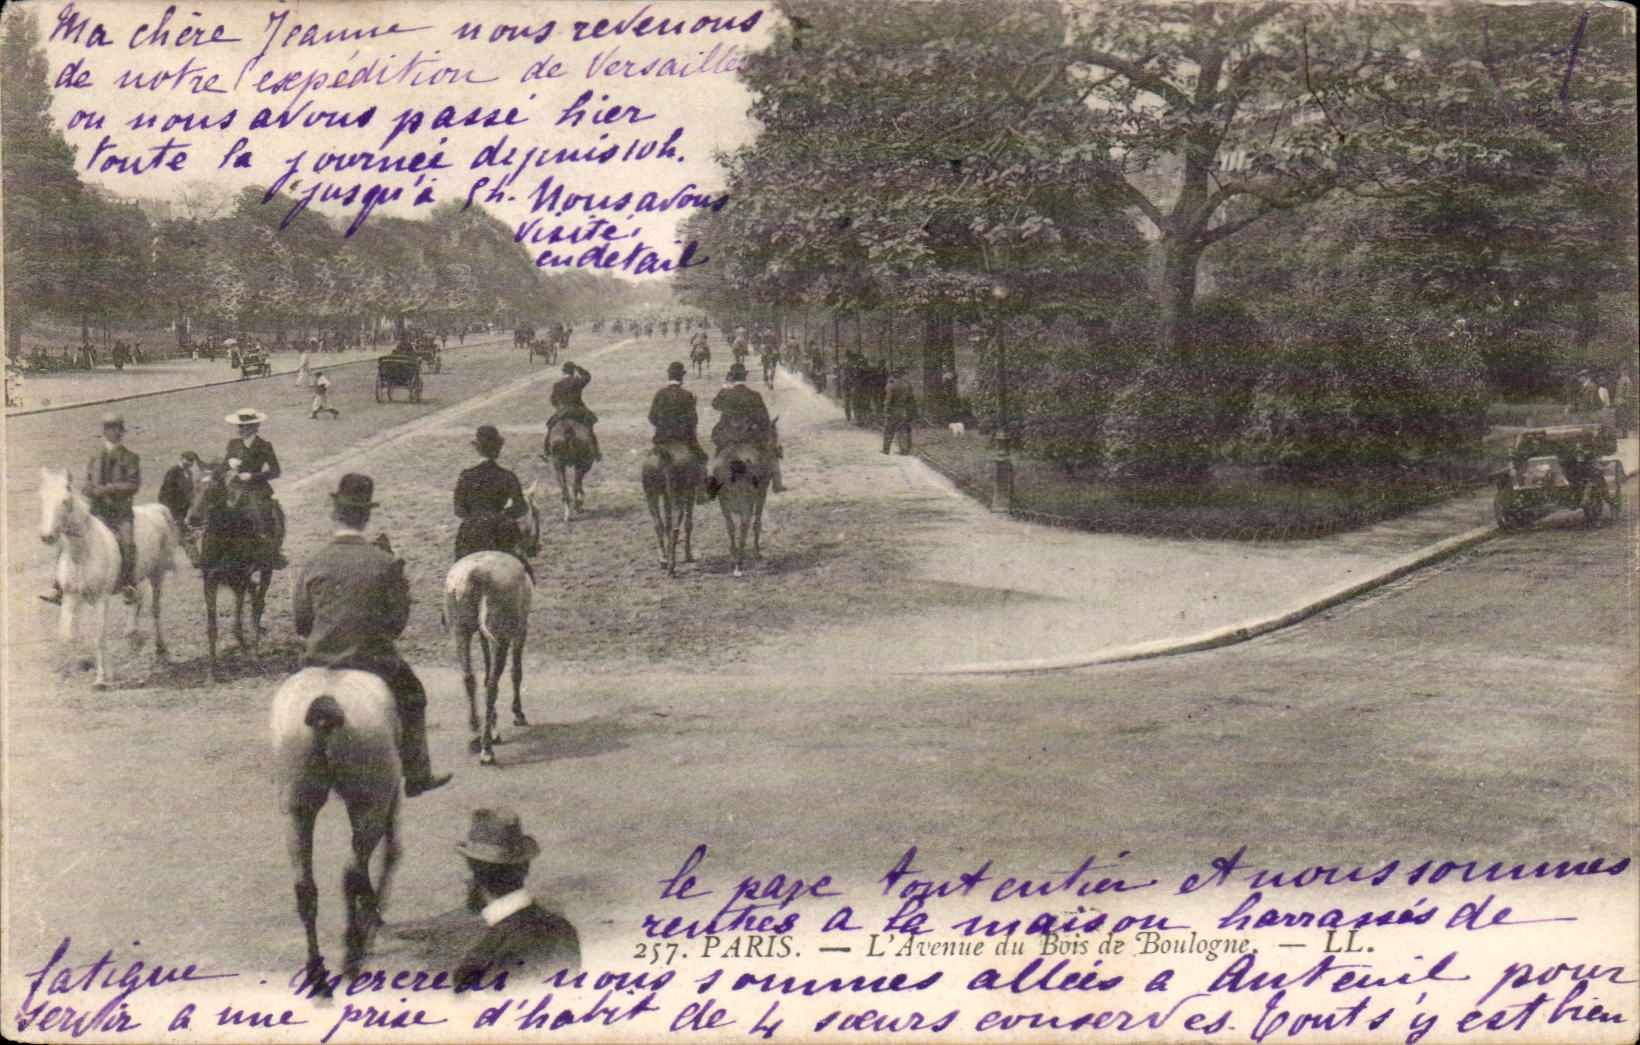 Ma chère Jeanne nous revenons
de notre expédition de Versailles
ou nous avons passé hier
toute la journée depuis 10h.
jusqu'à 5h. Nous avons
visité
en detail
le parc tout entier et nous sommes
rentrés a la maison harrassés de
257. PARIS. — L'Avenue du Bois de Boulogne. — LL.
fatigue. Mercredi nous sommes allées a Auteuil pour
servir a une prise d'habit de 4 sœurs converses. Tout s'y est bien